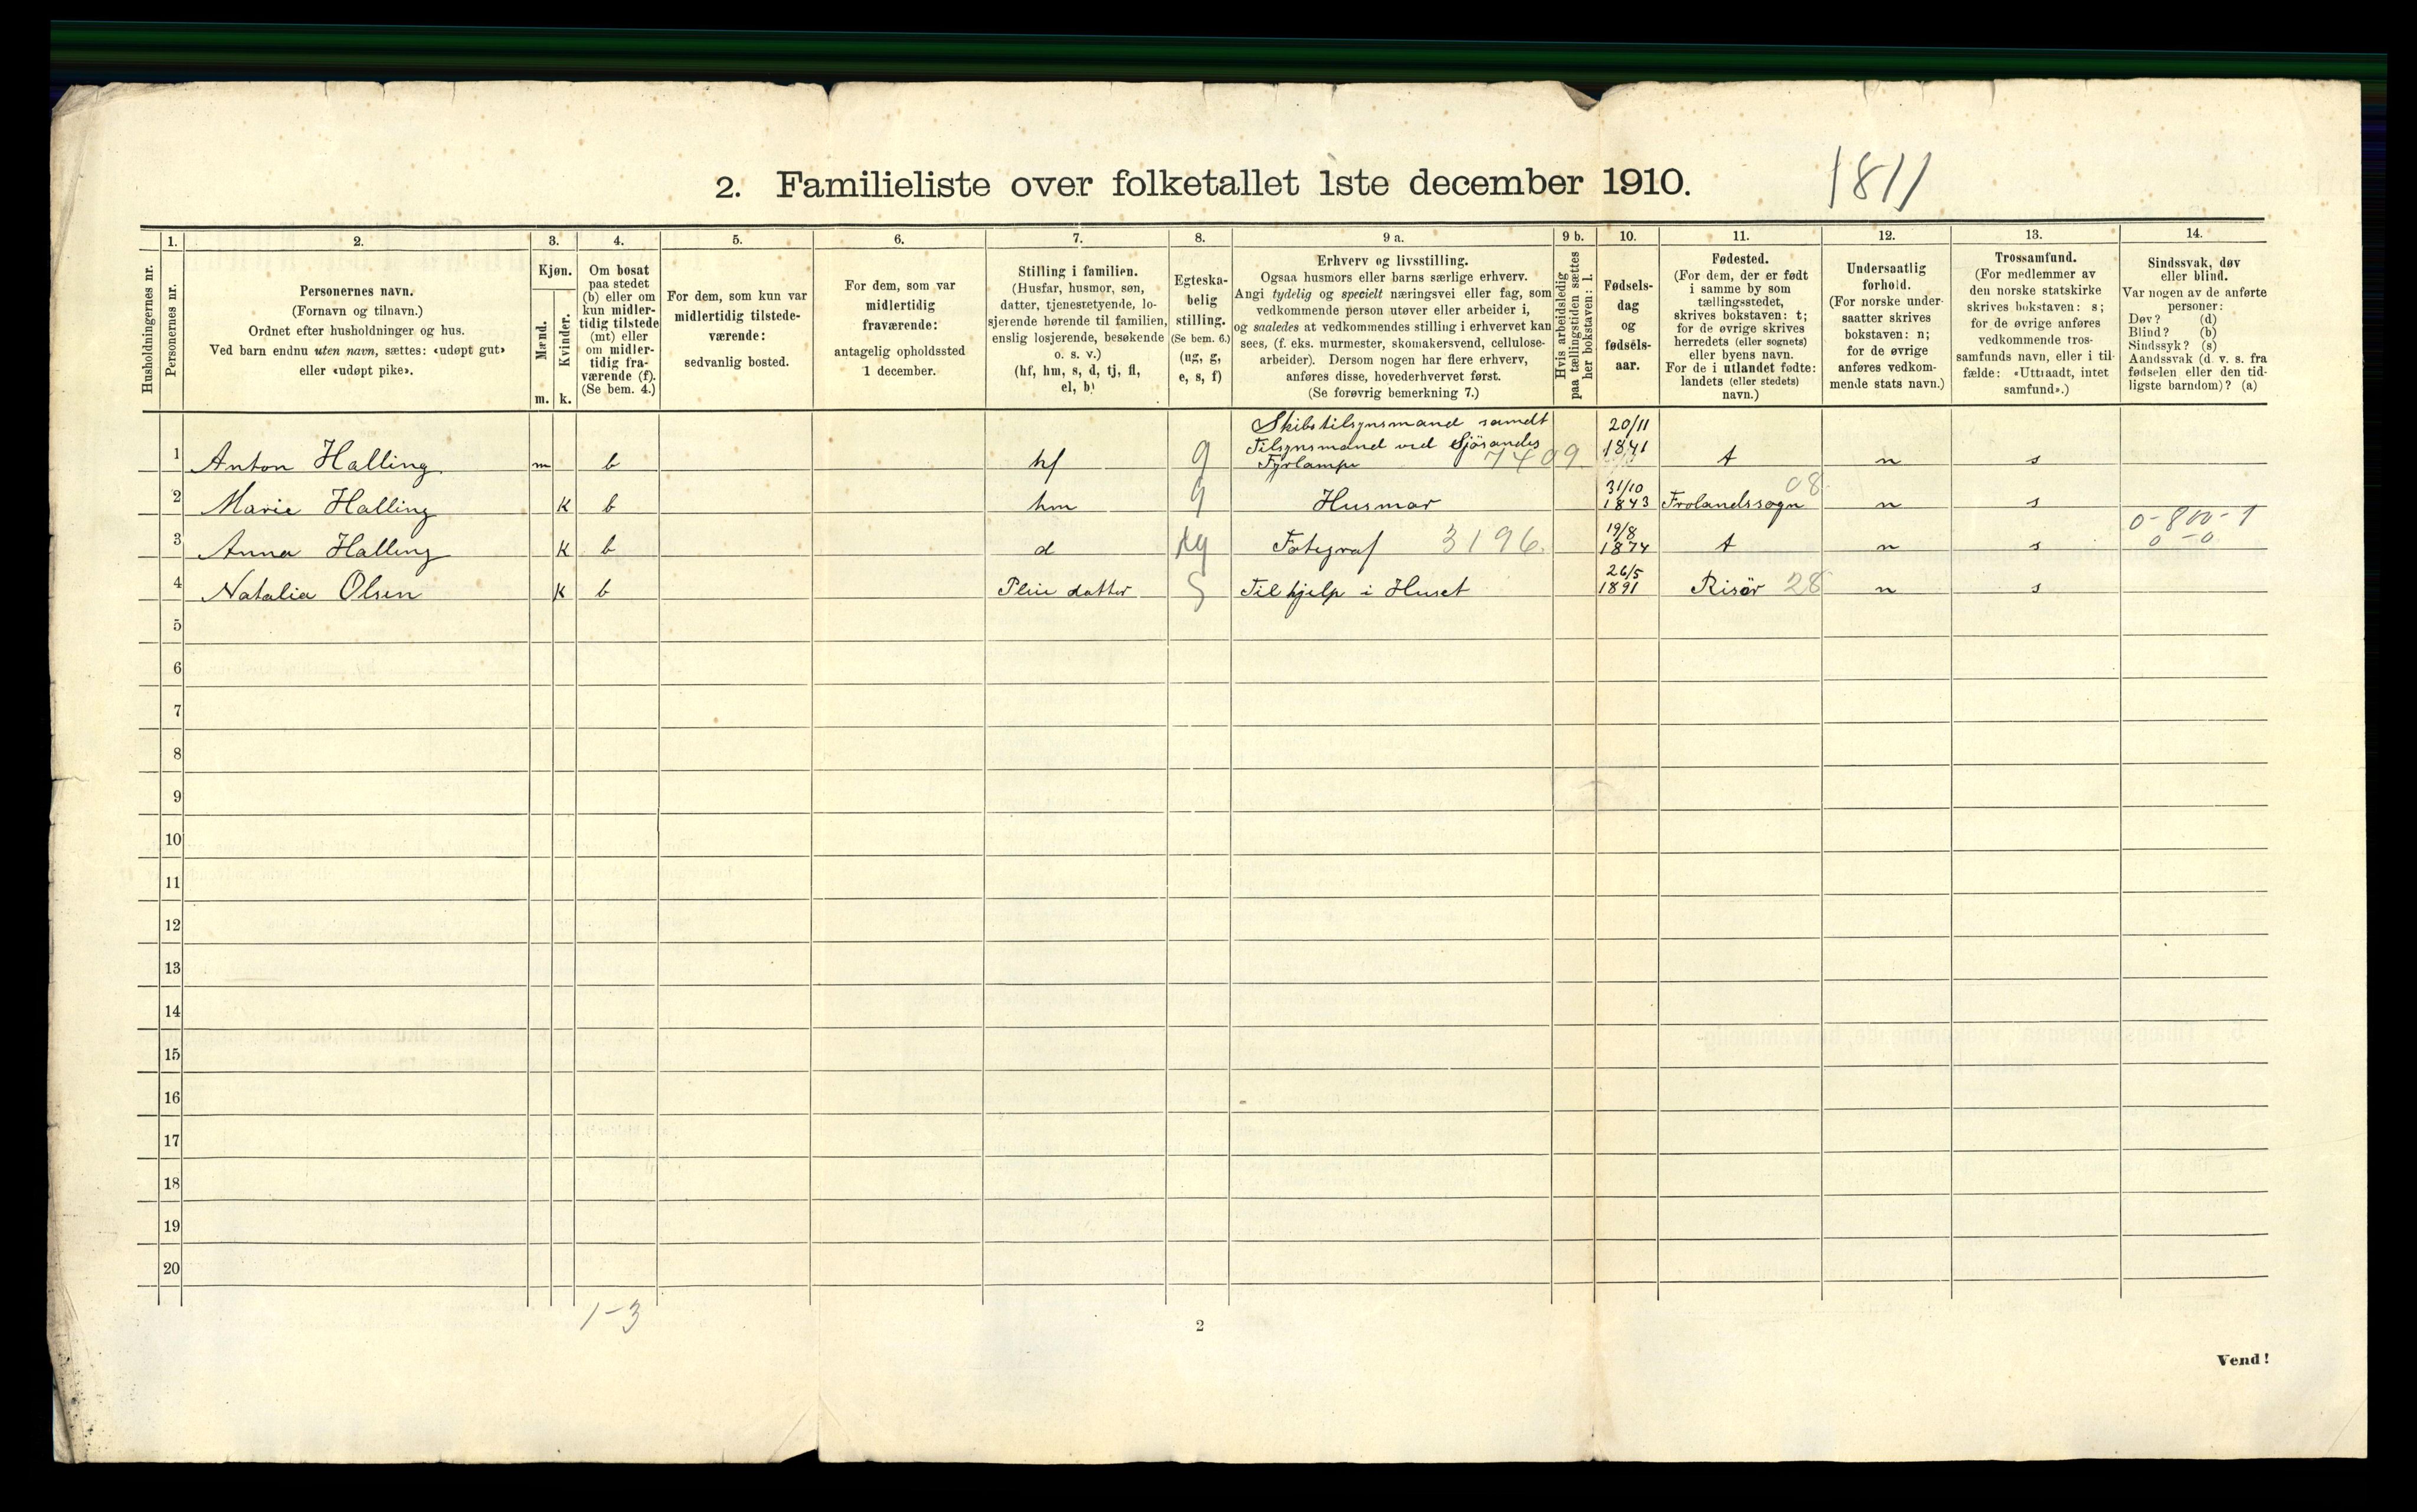 2. Familieliste over folketallet 1ste december 1910.
1811
Husholdningernes nr.
1.
Personernes nr.
2.
Personernes navn.
(Fornavn og tilnavn.)
Ordnet efter husholdninger og hus.
Ved barn endnu uten navn, sættes: «udøpt gut»
eller «udøpt pike».
3.
Kjøn.
Mænd.
Kvinder.
m.
k.
4.
Om bosat
paa stedet
(b) eller om
kun midler-
tidig tilstede
(mt) eller
om midler-
tidig fra-
værende (f).
(Se bem. 4.)
5.
For dem, som kun var
midlertidig tilstede-
værende:
sedvanlig bosted.
6.
For dem, som var
midlertidig
fraværende:
antagelig opholdssted
1 december.
7.
Stilling i familien.
(Husfar, husmor, søn,
datter, tjenestetyende, lo-
sjerende hørende til familien,
enslig losjerende, besøkende
o. s. v.)
(hf, hm, s, d, tj, fl,
el, b)
8.
Egteska-
belig
stilling.
(Se bem. 6.)
(ug, g,
e, s, f)
9 a.
Erhverv og livsstilling.
Ogsaa husmors eller barns særlige erhverv.
Angi tydelig og specielt næringsvei eller fag, som
vedkommende person utøver eller arbeider i,
og saaledes at vedkommendes stilling i erhvervet kan
sees, (f. eks. murmester, skomakersvend, cellulose-
arbeider). Dersom nogen har flere erhverv,
anføres disse, hovederhvervet først.
(Se forøvrig bemerkning 7.)
9 b.
Hvis arbeidsledig
paa tællingstiden sættes
her bokstaven: l.
10.
Fødsels-
dag
og
fødsels-
aar.
11.
Fødested.
(For dem, der er født
i samme by som
tællingsstedet,
skrives bokstaven: t;
for de øvrige skrives
herredets (eller sognets)
eller byens navn.
For de i utlandet fødte:
landets (eller stedets)
navn.)
12.
Undersaatlig
forhold.
(For norske under-
saatter skrives
bokstaven: n;
for de øvrige
anføres vedkom-
mende stats navn.)
13.
Trossamfund.
(For medlemmer av
den norske statskirke
skrives bokstaven: s;
for de øvrige anføres
vedkommende tros-
samfunds navn, eller i til-
fælde: «Uttraadt, intet
samfund».)
14.
Sindssvak, døv
eller blind.
Var nogen av de anførte
personer:
Døv? (d)
Blind? (b)
Sindssyk? (s)
Aandssvak (d. v. s. fra
fødselen eller den tid-
ligste barndom)? (a)
Skibstilsynsmand samdt 20/11
Tilsynsmand ved Sjösandes 1841
1 Anton Halling m b hf g Fyrlampe 7409 t n s
31/10 08
2 Marie Halling K b hm g Husmor 1843 Frolandssogn n s
19/8 0-800-1
3 Anna Halling K b d ug Fotograf 3196. 1874 t n s 0-0
26/5
4 Natalia Olsen K b Pleie datter Til hjelp i Huset 1891 Risör 28 n s
5
6
7
8
9
10
11
12
13
14
15
16
17
18
19
20
1-3
2
Vend!